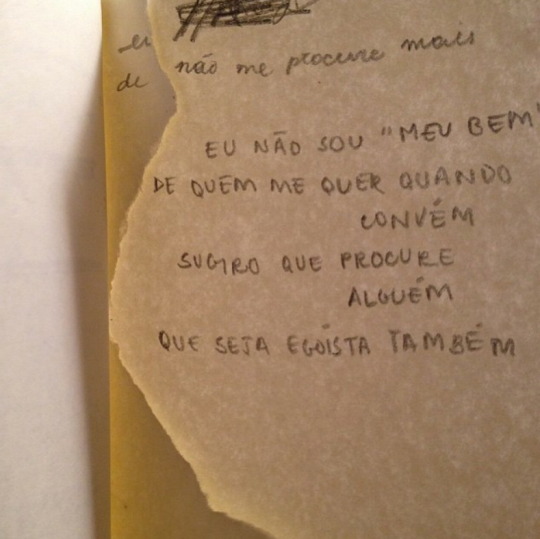 não me procure mais
de
EU NÃO SOU "MEU BEM"
DE QUEM ME QUER QUANDO
CONVÉM
SUGIRO QUE PROCURE
ALGUÉM
QUE SEJA EGOÍSTA TAMBÉM